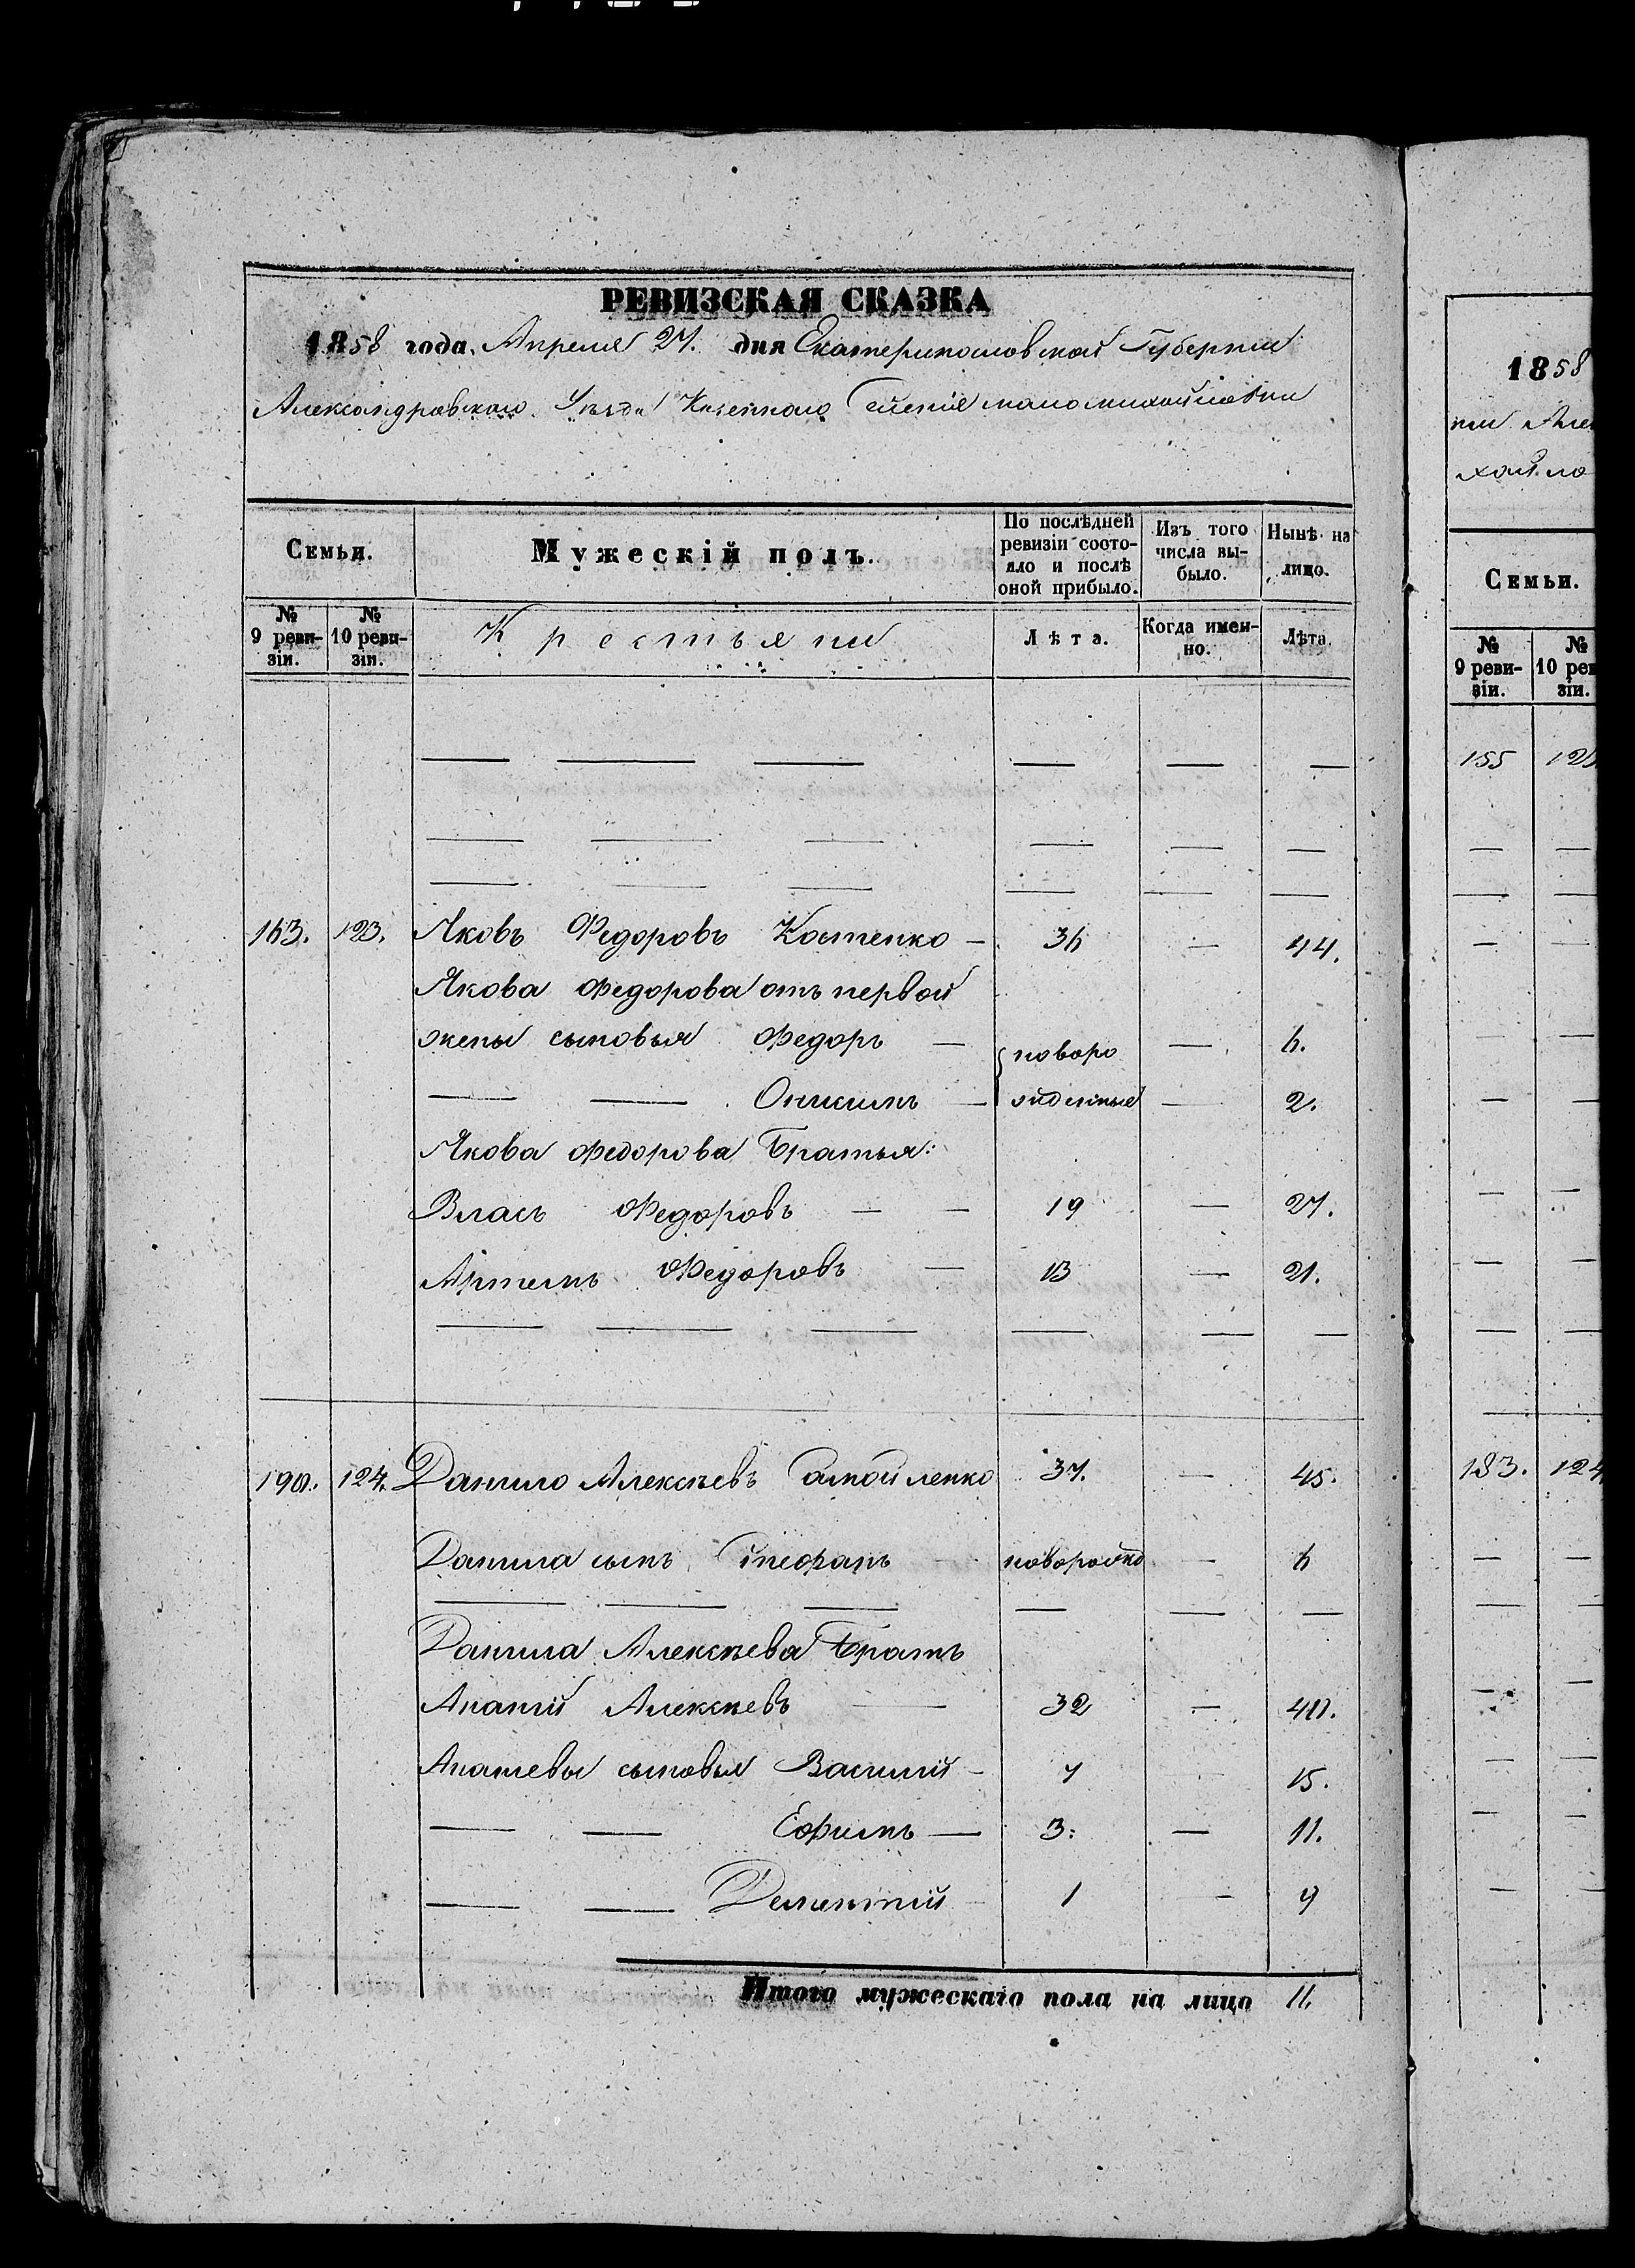 РЕВИЗСКАЯ СКАЗКА
1858 года, Апреля 27. дня Екатеринославской Губернии
Александровского Уезда Казенного Селения маломихайловки
Семьи.
Мужескій полъ.
По послѣдней ревизіи состояло и послѣ оной прибыло.
Изъ того числа выбыло.
Нынѣ на лицо.
№ 9 ревизіи.
№ 10 ревизіи.
Крестьяни
Лѣта.
Когда именно.
Лѣта.
163. 123. Яковъ Федоровъ Костенко — 36 — 44.
Якова Федорова отъ первой
жены сыновья Федоръ — новоро — 6.
— — Онисимъ — жденные — 2.
Якова Федорова Братья:
Власъ Федоровъ — — 19 — 27.
Артемъ Федоровъ — 13 — 21.
190. 124. Данило Алексѣевъ Самойленко 37. — 45.
Данила сынъ Стефанъ — новорожд — 6
Данила Алексѣева Братъ
Ананій Алексѣевъ — 32 — 40.
Ананіевы сыновья Василій — 7 — 15.
— — Ефимъ — 3: — 11.
— — Дементій — 1 — 9
Итого мужескаго пола на лицо 11.
1858
нии Але
хайло
Семьи.
№ 9 ревизіи.
№ 10 реви
зіи.
155 123
183. 124